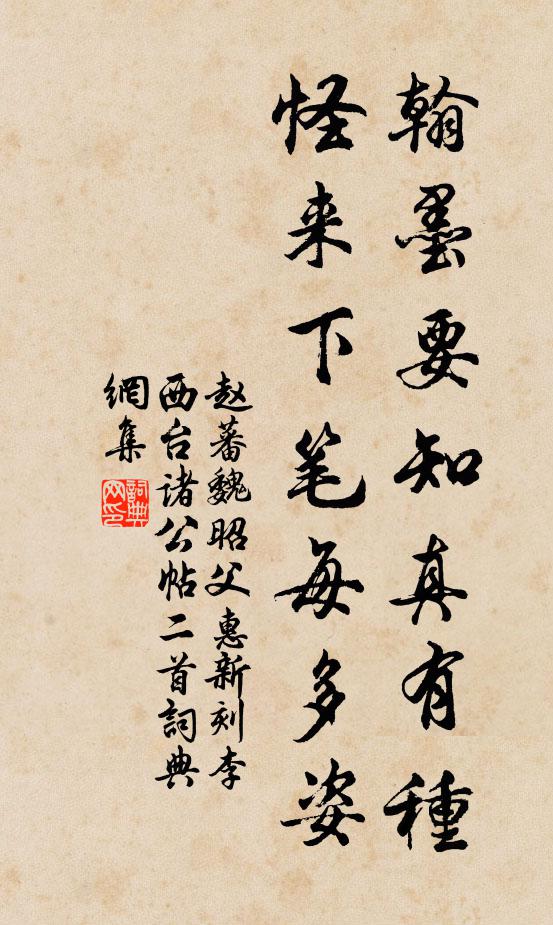 翰墨要知真有種
怪来下笔每多姿
赵蕃魏昭父惠新刻李
西台诸公帖二首詞典
網集
詞典
网印